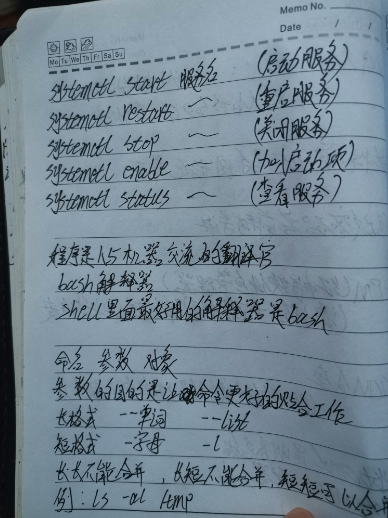 Memo No.
Date / /
Mo Tu We Th Fr Sa Su
systemctl start 服务名 (启动服务)
systemctl restart ~ (重启服务)
systemctl stop ~ (关闭服务)
systemctl enable ~ (加入启动项)
systemctl status ~ (查看服务)
程序是人与机器交流的翻译官
bash解释器
shell里面最好用的解释器是bash
命名 参数 对象
参数的目的是让命令更好的贴合工作
长格式 --单词 --list
短格式 -字母 -l
长长不能合并，长短不能合并，短短可以合并
例：ls -al temp